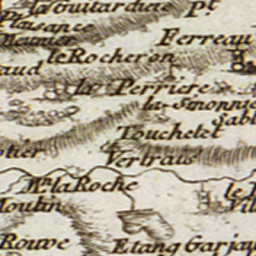 la Guitardiere Pt
Plaisance
Meunier
Ferreau
le Rocheron
aud
la Perriere
la Simonnie
Sabl
Touchelet
otier
Vertrais
Mn. la Roche
le P
Moulin
Vil
Rouve
Etang Garjau